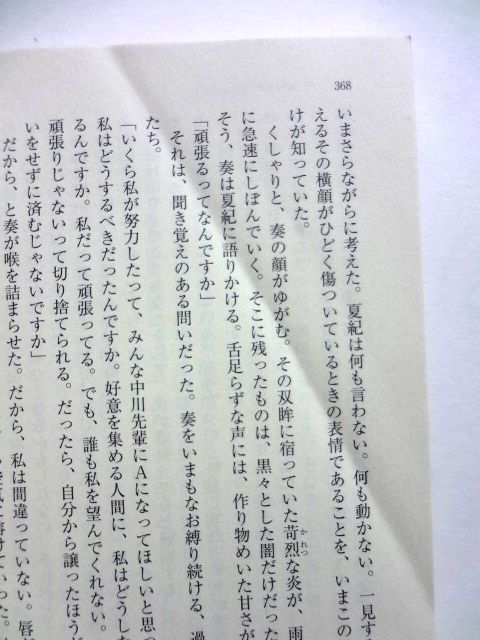 368
いまさらながらに考えた。夏紀は何も言わない。何も動かない。一見す
えるその横顔がひどく傷ついているときの表情であることを、いまこの
けが知っていた。
くしゃりと、奏の顔がゆがむ。その双眸に宿っていた苛烈な炎が、雨
かれつ
に急速にしぼんでいく。そこに残ったものは、黒々とした闇だけだった
そう、奏は夏紀に語りかける。舌足らずな声には、作り物めいた甘さが
「頑張るってなんですか」
それは、聞き覚えのある問いだった。奏をいまもなお縛り続ける、過
たち。
「いくら私が努力したって、みんな中川先輩にAになってほしいと思っ
私はどうするべきだったんですか。好意を集める人間に、私はどうした
るんですか。私だって頑張ってる。でも、誰も私を望んでくれない。
頑張りじゃないって切り捨てられる。だったら、自分から譲ったほうが
いをせずに済むじゃないですか」
だから、と奏が喉を詰まらせた。だから、私は間違っていない。唇